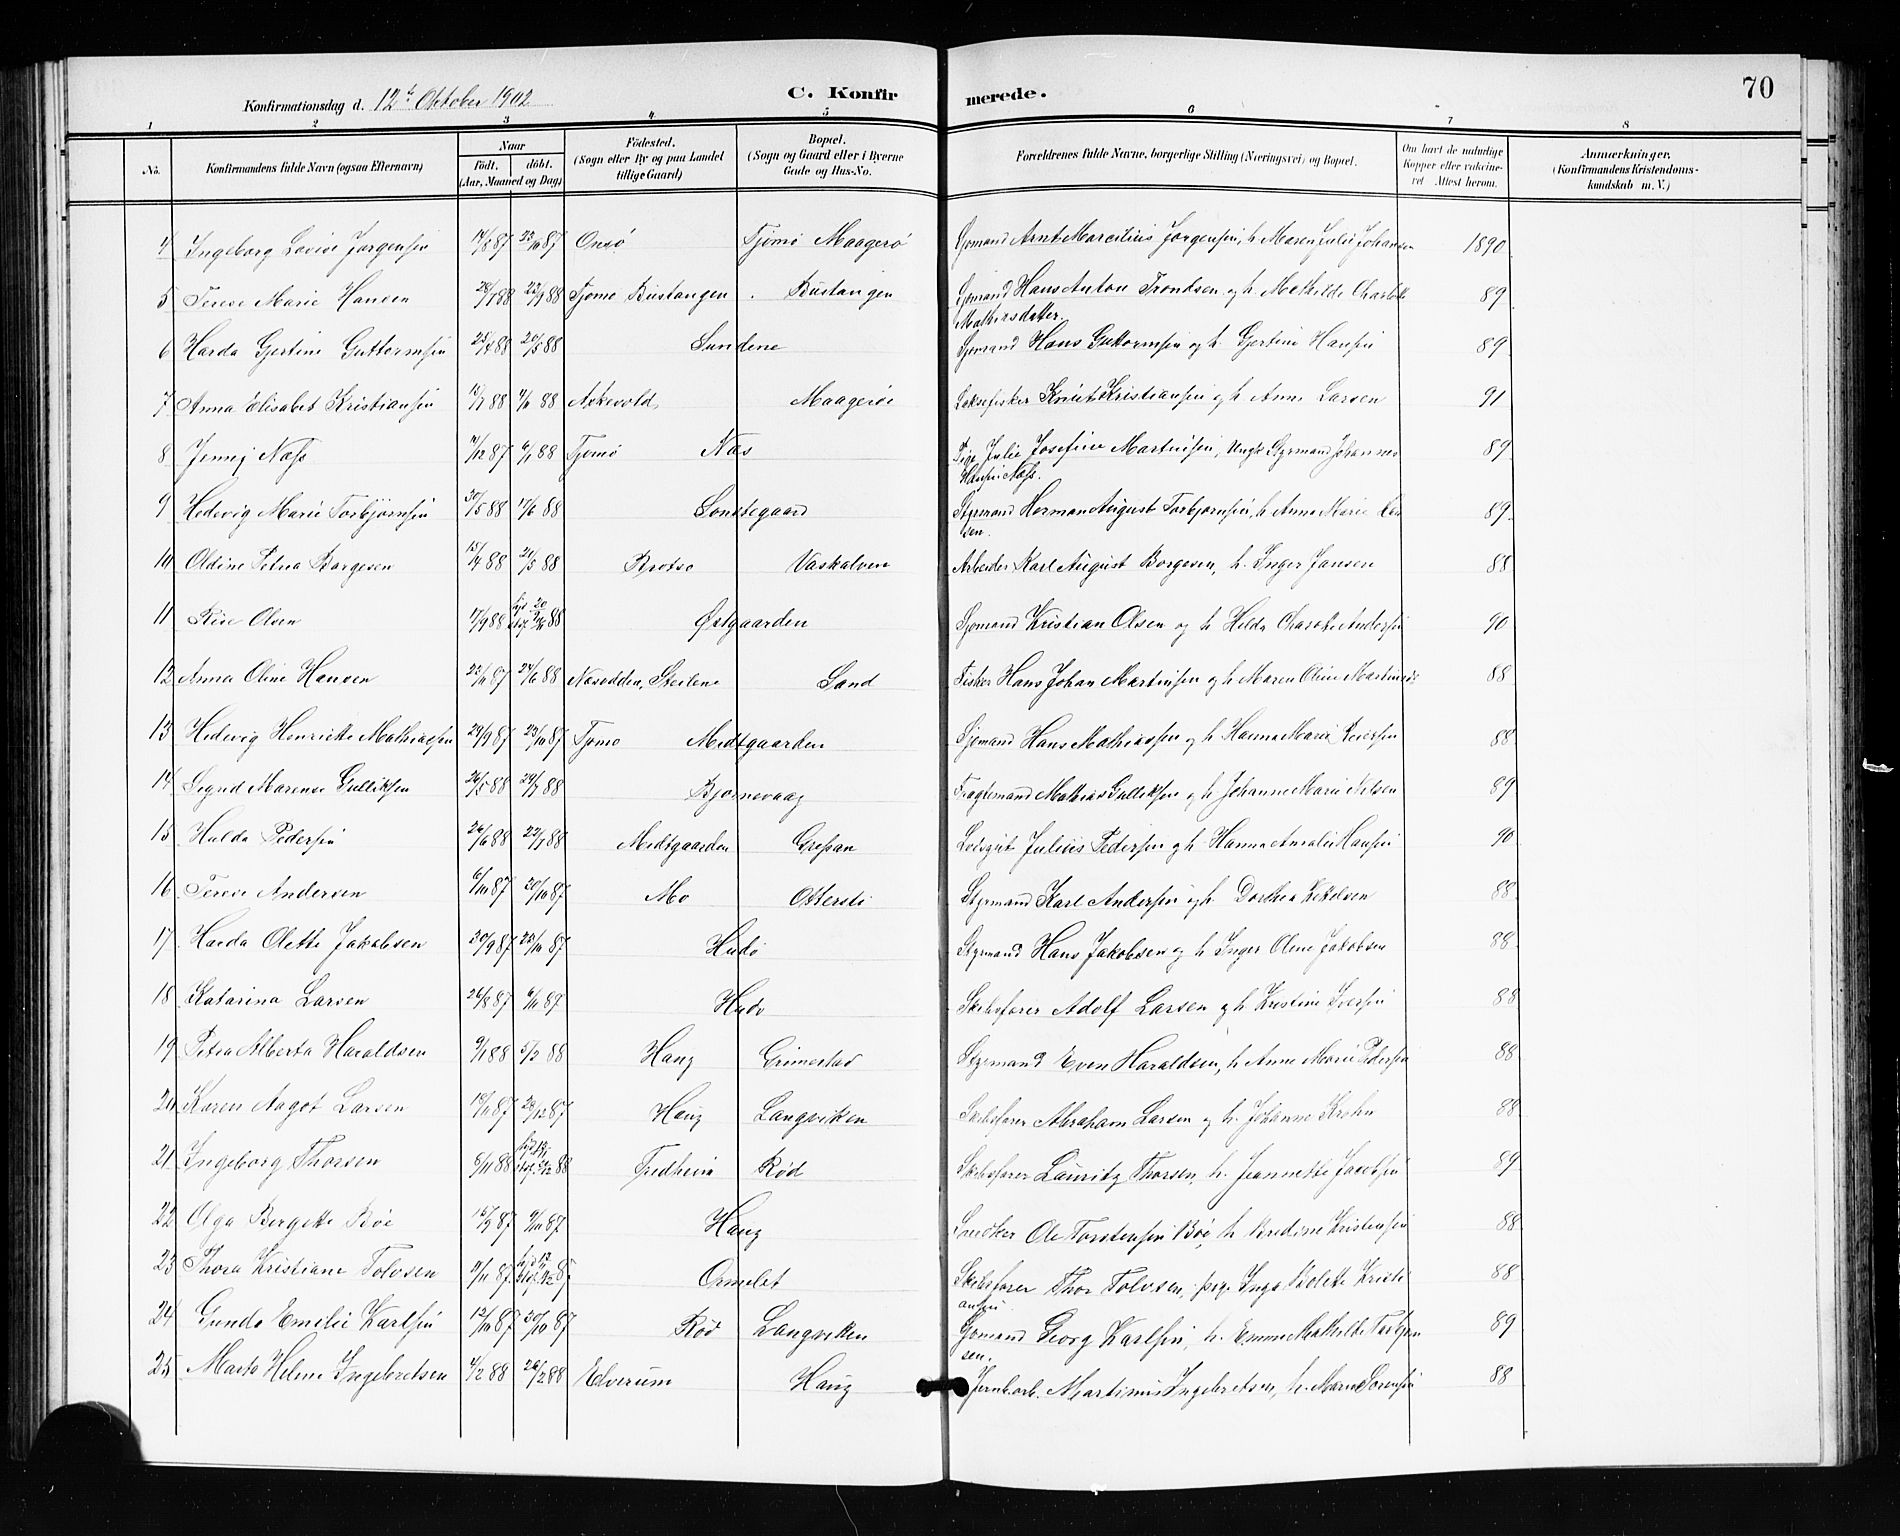 70
Konfirmationsdag d. 12te Oktober 1902 C. Konfirmerede.
1 2 3 4 5 6 7 8
No. Konfirmandens fulde Navn (ogsaa Efternavn) Naar Födt. döbt. (Aar, Maaned og Dag) Födested. (Sogn eller By og paa Landet tillige Gaard) Bopæl. (Sogn og Gaard eller i Byerne Gade og Hus-No. Forældrenes fulde Navne, borgerlige Stilling (Næringsvei) og Bopæl. Om havt de naturlige Kopper eller vaccineret Attest herom. Anmærkninger. (Konfirmandens Kristendomskundskab m. V.)
4 Ingeborg Lovise Jørgensen 87 23/10 87 Onsø Tjømø Maagerø Sjømand Arnt Marcelius Jørgensen, h. Maren Julie Johansen 1890
5 Terese Marie Hansen 88 88 Tjømø Bustangen Bustangen Sjømand Hans Anton Trondsen og h. Mathilde Charlotte
Mathisdatter. 89
6 Harda Gjertine Guttormsen 25/4 88 20/5 88 Sundene Sjømand Hans Guttormsen og h. Gjertine Hansen 89
7 Anna Elisabet Kristiansen 88 88 Askevold, Maagerø Laksefisker Knut Kristiansen og h. Anne Larsen 91
8 Jenny Næss 11/12 87 6/1 88 Tjømø Næs Pige Julie Josefine Martinsen, Ungk. Styrmand Johannes
Hansen Næss. 89
9 Hedevig Marie Torbjørnsen 30/5 88 17/6 88 Sønstegaard Styrmand Herman August Torbjørnsen, h. Anne Marie
sen. 89
10 Oldine Petra Borgesen 15/4 88 21/5 88 Brøtsø Vaskalven Arbeider Karl August Borgesen, h. Inger Jansen 88
11 Olsen 17/9 88 88 Østgaarden Sjømand Kristian Olsen og h. Hilda Charlotte Andersen 90
12 Anna Oline Hansen 23/11 87 24/6 88 Næsodden, Steilene Sand Fisker Hans Johan Martinsen og h. Maren Oline Martinsen 88
13 Hedevig Henriette Mathiassen 29/9 87 23/10 87 Tjømø Midtgaarden Sjømand Hans Mathiassen og h. Hanna Marie Pedersen 88
14 Signd Marense Gulliksen 26/5 88 29/7 88 Bjørnevaag Fragtemand Mathias Gulliksen og h. Johanne Marie Nilsen 89
15 Hulda Pedersen 26/6 88 22/7 88 Midtgaarden Grepan Lodsgut Julius Pedersen og h. Hanna Amalie Hansen 90
16 Terese Andersen 6/10 87 30/10 87 Mo Ottersti Styrmand Karl Andersen og h. Dorthea 88
17 Harda Olette Jakobsen 30/9 87 23/10 87 Hudø Styrmand Hans Jakobsen og h. Inger Oline Jakobsen 88
18 Katarina Larsen 26/8 87 6/11 87 Hudø Skibsfører Adolf Larsen og h. Kristine Iversen 88
19 Petra Alberta Haraldsen 9/1 88 5/2 88 Haug Grimestad Styrmand Even Haraldsen, h. Anne Marie Pedersen 88
20 Karen Aagot Larsen 87 87 Haug Langviken Skibsfører Abraham Larsen og h. Johanne Krohn 88
21 Ingeborg Thorsen 8/11 88 88 Fredheim Rød Skibsfører Lauritz Thorsen, h. Jeannette Jacobsen 89
22 Olga Bergette Bøe 87 9/10 87 Haug Snedker Ole Torstensen Bøe, h. Bredine Kristensen 88
23 Thora Kristiane Tolvsen 11/11 87 87 Ormelet Skibsfører Thor Tolvsen, pige Inga Violette Kristi
ansen 88
24 Gunda Emilie Karlsen 12/10 87 30/10 87 Rød Langviken Sjømand Georg Karlsen, h. Emma Mathilde Torbjørn
sen. 89
25 Marta Helene Ingebretsen 4/2 88 26/2 88 Elverum Haug Jernb.arb. Martinius Ingebretsen, h. Marie Sørensen 88